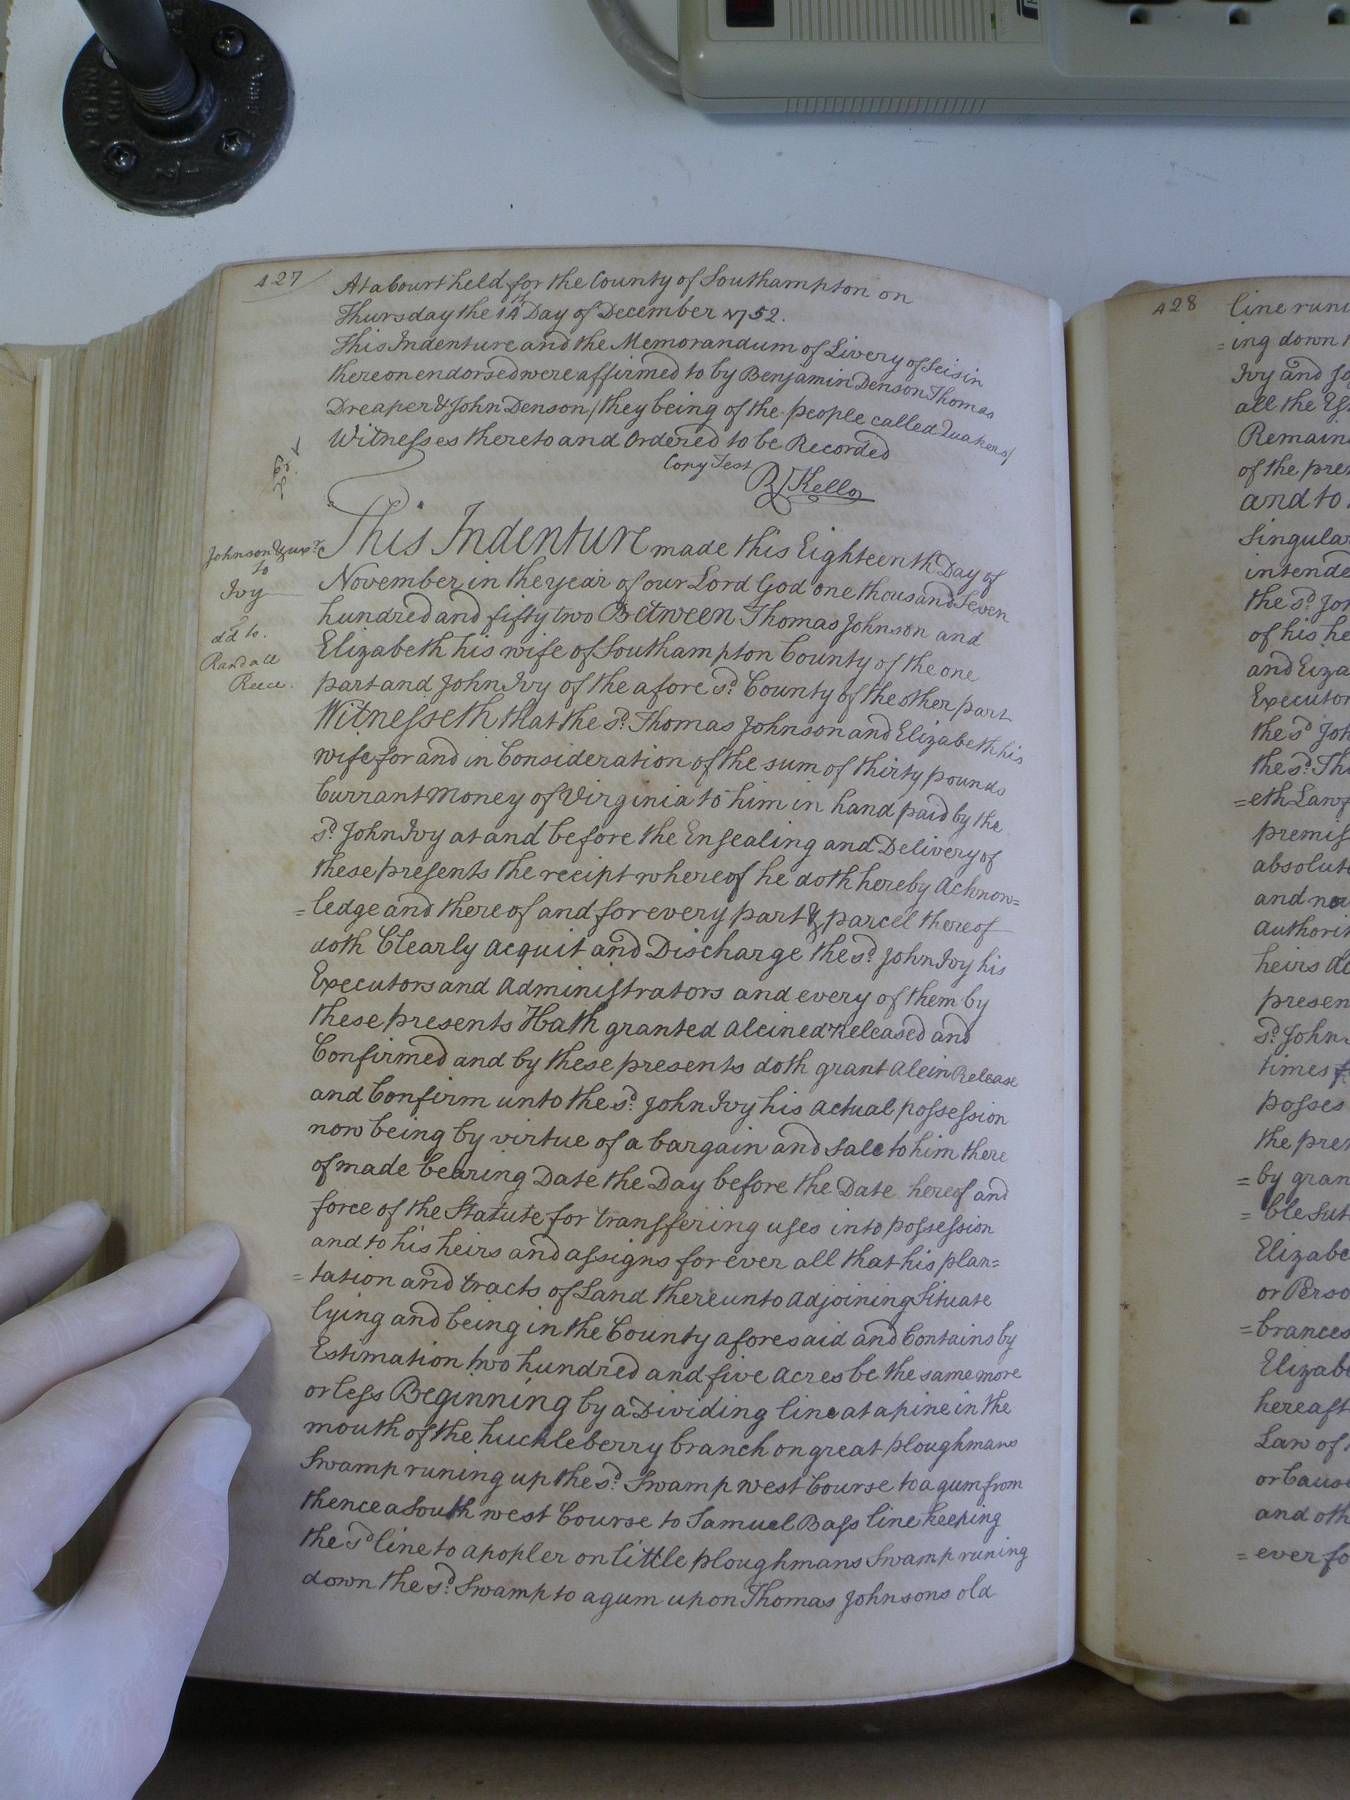 427
At a Court held for the County of Southampton on
Thursday the 14th Day of December 1752.
This Indenture and the Memorandum of Livery of Seisin
thereon endorsed were affirmed to by Benjamin Denson Thomas
Dreaper & John Denson /they being of the people called Quakers/
Witnesses thereto and Ordered to be Recorded
Copy Test
R/Kello
Johnson & uxr.
to
Ivy
dd to.
Randall
Reece.
This Indenture made this Eighteenth Day of
November in the year of our Lord God one thousand Seven
hundred and fifty two Between Thomas Johnson and
Elizabeth his wife of Southampton County of the one
part and John Ivy of the afore sd. County of the other part
Witnesseth that the sd. Thomas Johnson and Elizabeth his
wife for and in Consideration of the sum of thirty pounds
Currant Money of Virginia to him in hand paid by the
sd. John Ivy at and before the Ensealing and Delivery of
these presents the recipt whereof he doth hereby Acknow=
=ledge and thereof and for every part & parcel thereof
doth Clearly acquit and Discharge the sd. John Ivy his
Executors and Administrators and every of them by
these presents Hath granted aleined & Released and
Confirmed and by these presents doth grant alein Release
and Confirm unto the sd. John Ivy his actual possession
now being by virtue of a bargain and sale to him there
of made bearing Date the Day before the Date hereof and
force of the Statute for transfering uses into possession
and to his heirs and assigns for ever all that his plan=
=tation and tracts of Land thereunto adjoining Situate
lying and being in the County aforesaid and Contains by
Estimation two hundred and five acres be the same more
or less Beginning by a Dividing line at a pine in the
mouth of the huckleberry branch on great ploughmans
Swamp runing up the sd. Swamp west Course to a gum from
thence a South west Course to Samuel Bass line keeping
the sd line to a popler on little ploughmans Swamp runing
down the sd. Swamp to a gum upon Thomas Johnsons old
428
line runi
=ing down
Ivy and Jo
all the Es
Remain
of the pre
and to
Singular
intende
the sd. Joh
of his he
and Eliza
Executor
the sd Joh
the sd. Tho
=eth Lawf
premis
absolute
and now
authorit
heirs
presen
sd. John
times
posses
the prem
=by gran
=ble
Elizabe
or Perso
=brances
Elizabe
hereaft
Law of
or Caus
and oth
=ever fo